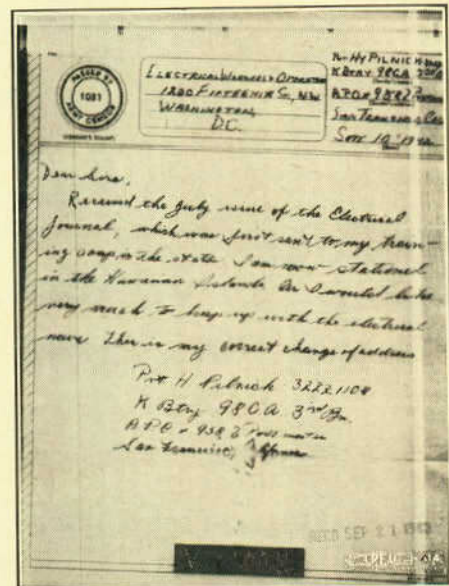 PASSED BY
1081
ARMY CENSOR
ELECTRICAL WORKERS & OPERATORS
1200 FIFTEENTH St., N.W.
WASHINGTON,
D.C.
Pvt Hy PILNICK
K BTRY 98CA
A.P.O. # 958
San Francisco Cal
Sept 10
Dear Sirs,
Received the July issue of the Electrical
Journal, which was first sent to my train-
ing camp in the state I am now stationed
in the Hawaiian Islands I would like
very much to keep up with the electrical
news This is my correct change of address
Pvt H Pilnick 32221108
K Btry 98CA 3rd Bn.
A.P.O. # 958 % Postmaster
San Francisco,
REC'D SEP 21